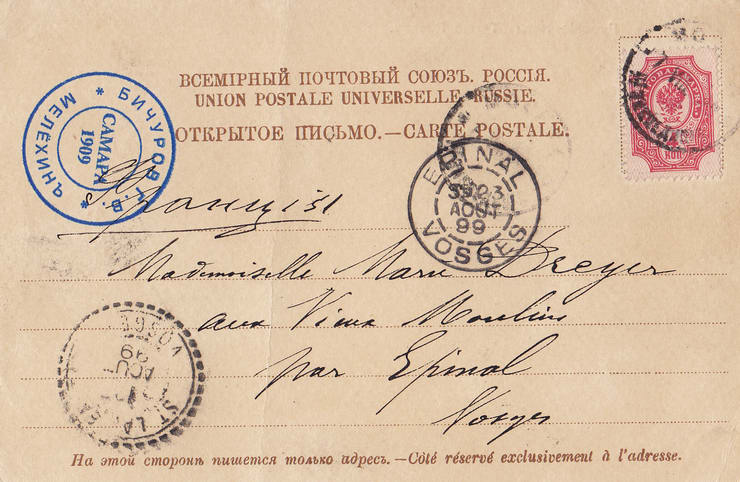 ВСЕМІРНЫЙ ПОЧТОВЫЙ СОЮЗЪ. РОССІЯ.
UNION POSTALE UNIVERSELLE. RUSSIE.
ОТКРЫТОЕ ПИСЬМО.—CARTE POSTALE.
БИЧУРОВ Г.В. * МЕЛЕХИНЪ *
САМАРА
1909
EPINAL
23
AOUT
99
VOSGES
4
КОП
Mademoiselle Marie Dreyer
aux Vieux Moulins
par Epinal
Vosges
VOSGES
AOUT
99
На этой сторонѣ пишется только адресъ.—Côté réservé exclusivement à l'adresse.